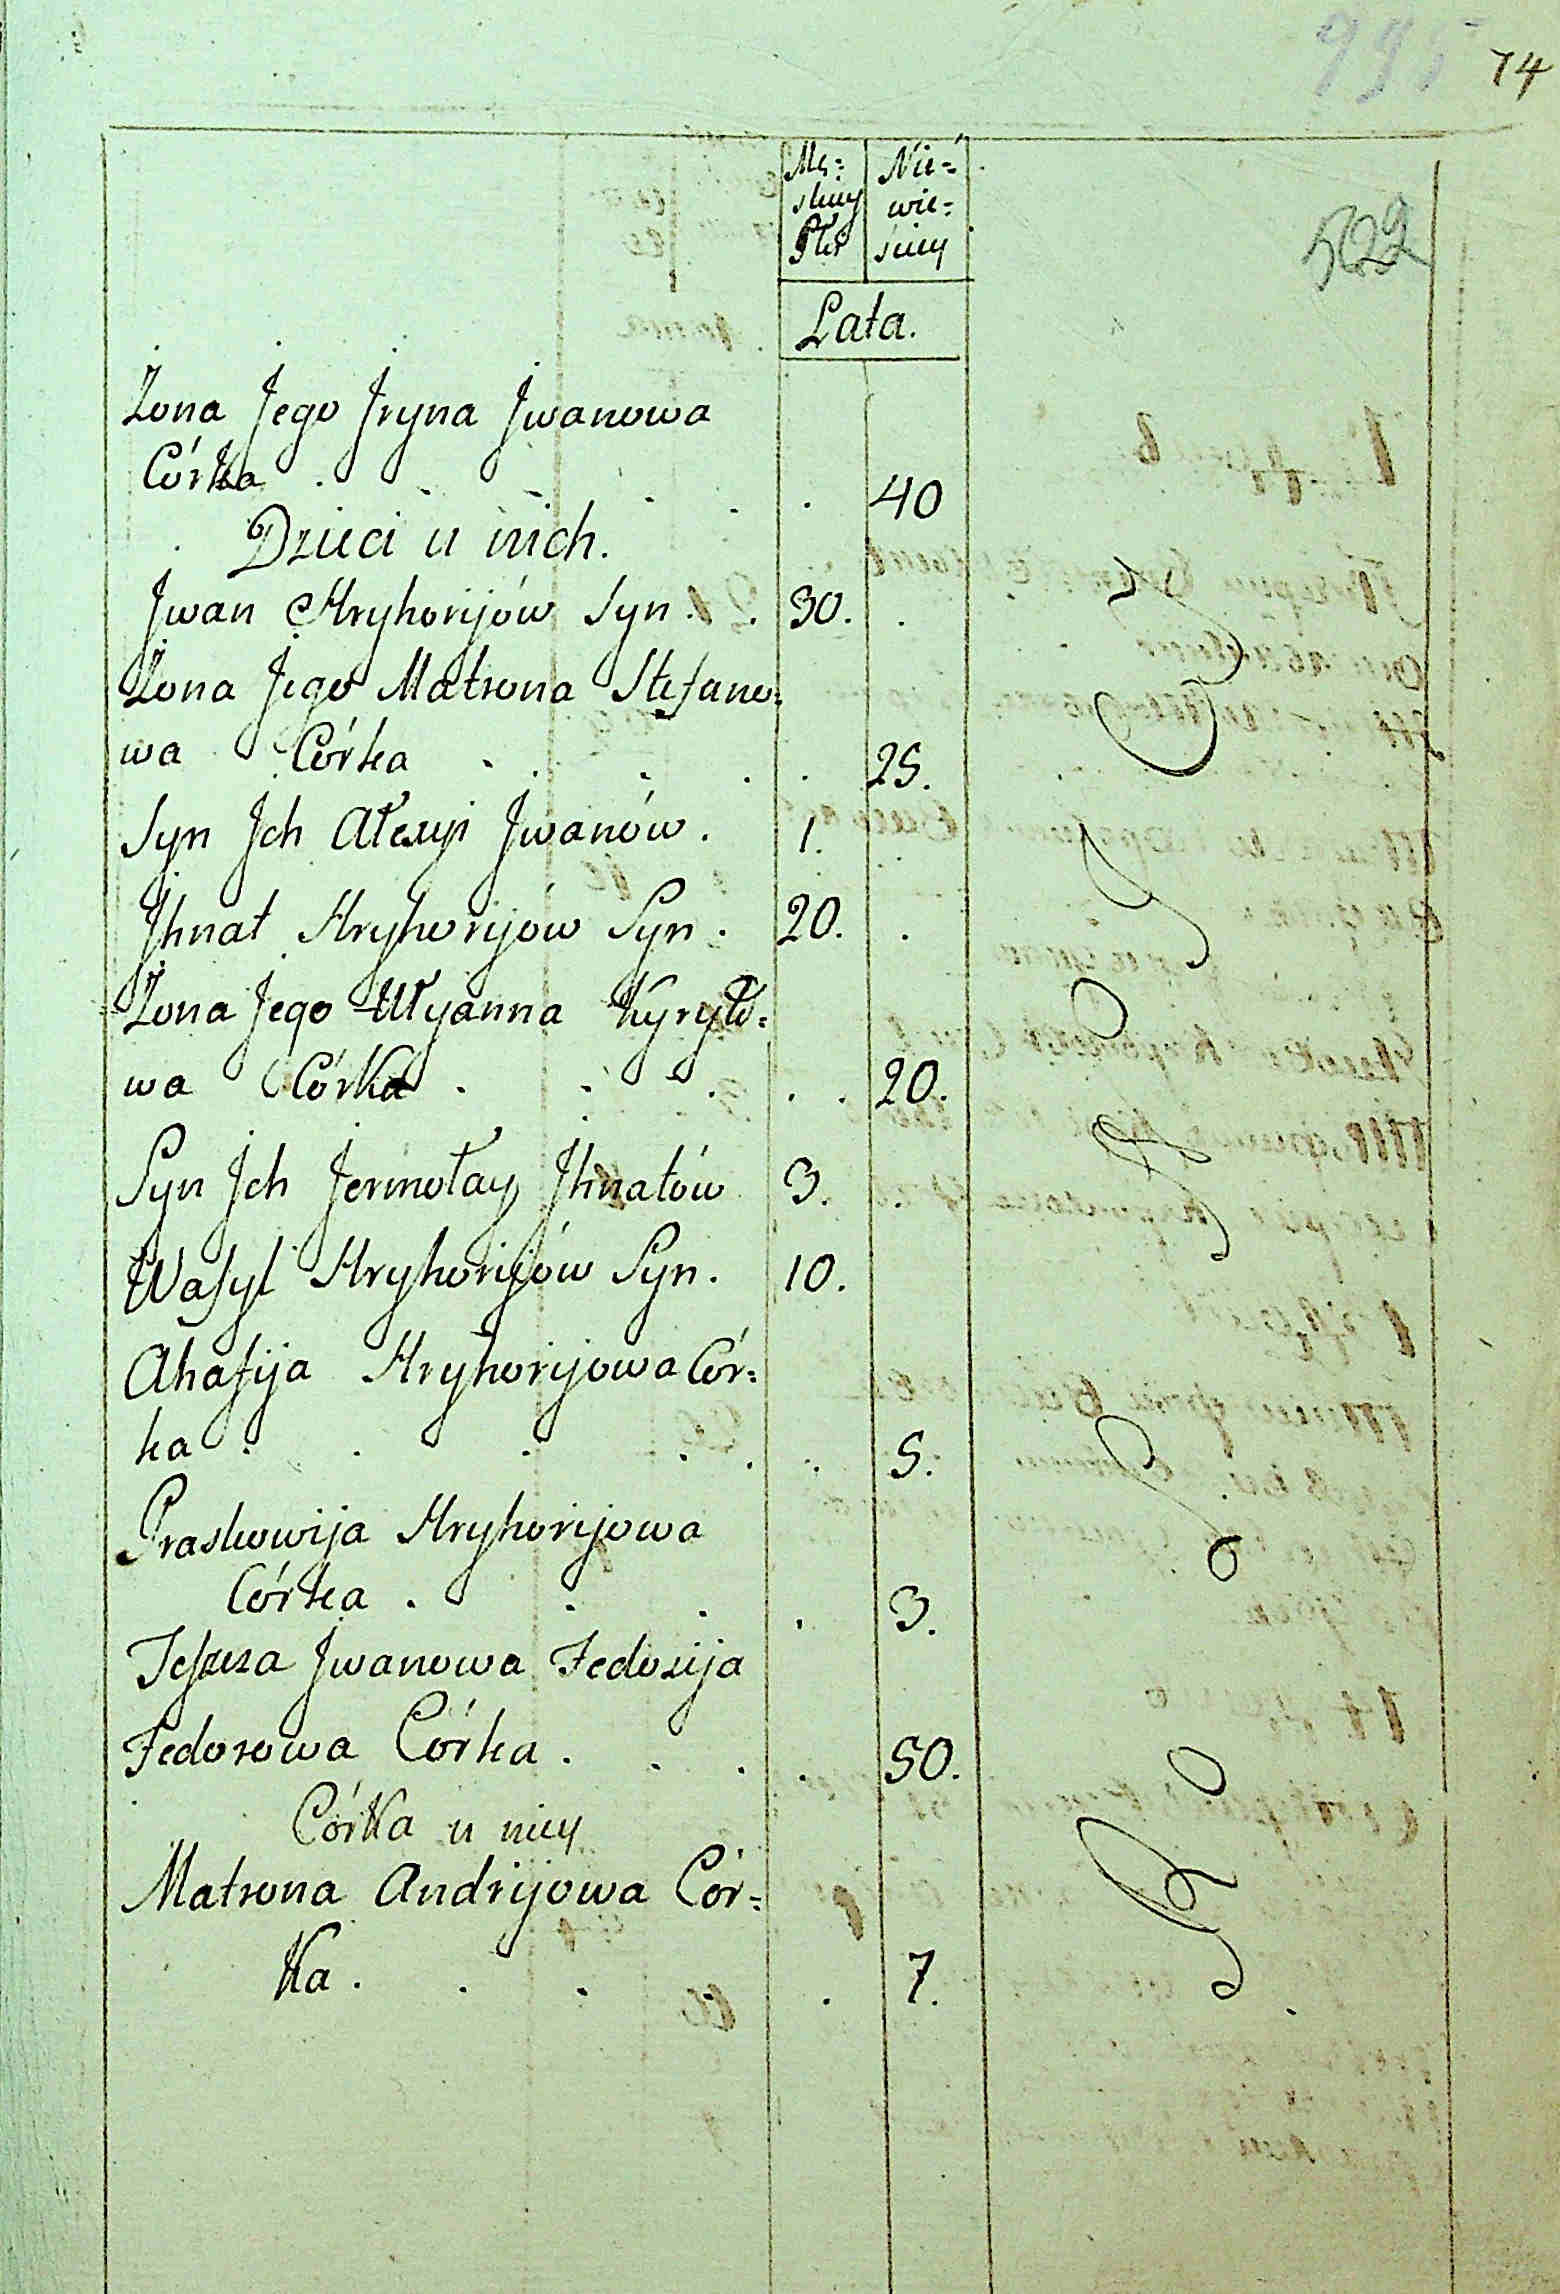 74
522
Mę= Nie=
skiey wie=
Płci sciey
Lata.
Żona Jego Jryna Jwanowa
Córka . . . . . . 40
Dzieci u nich.
Jwan Hryhorijów Syn . . 30. .
Żona Jego Matrona Stefano=
wa Córka . . . . . 25.
Syn Jch Ałexyi Jwanów. 1. .
Jhnat Hryhorijów Syn. 20. .
Żona Jego Ułyanna Kyryło=
wa Córka . . . . . 20.
Syn Jch Jermołay Jhnatów 3.
Wasyl Hryhorijów Syn. 10.
Ahafija Hryhorijowa Cór=
ka . . . . . . 5.
Praskowija Hryhorijowa
Córka . . . . 3.
Jwanowa Fedosija
Fedorowa Córka . . . . 50.
Córka u niey
Matrona Andrijowa Cór=
ka . . . . 7.